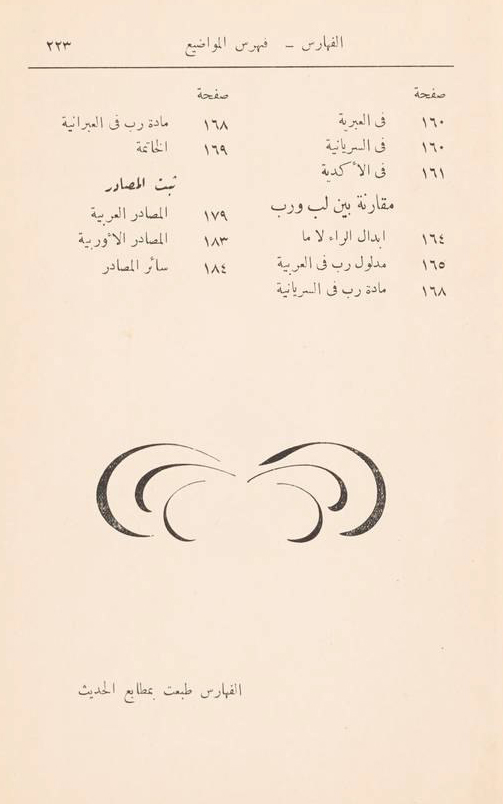 الفهارس — فهرس المواضيع ٢٢٣
صفحة
١٦٠ فى العبرية
١٦٠ فى السريانية
١٦١ فى الأكدية
مقارنة بين لب ورب
١٦٤ ابدال الراء لاما
١٦٥ مدلول رب فى العربية
١٦٨ مادة رب فى السريانية
صفحة
١٦٨ مادة رب فى العبرانية
١٦٩ الخاتمة
ثبت المصادر
١٧٩ المصادر العربية
١٨٣ المصادر الأوربية
١٨٤ سائر المصادر
الفهارس طبعت بمطابع الحديث